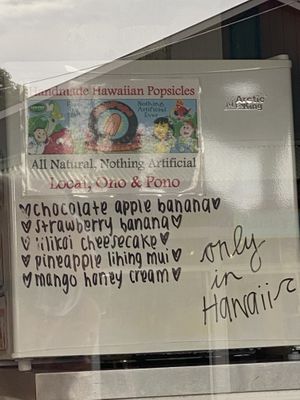 Handmade Hawaiian Popsicles
Nothing
Artificial
Ever
All Natural, Nothing Artificial
Local, Ono & Pono
Arctic King
♡chocolate apple banana♡
♡strawberry banana♡
♡lilikoi cheesecake♡
♡pineapple lihing mui♡
♡mango honey cream♡
only
in
Hawaii